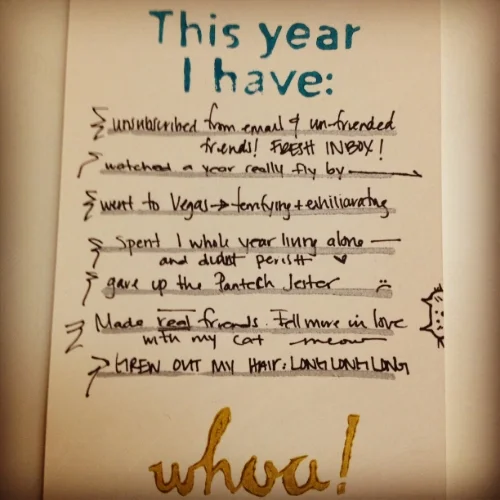 This year
I have:
unsubscribed from email & un-friended
friends! FRESH INBOX!
watched a year really fly by
went to Vegas → terrifying + exhiliarating
Spent 1 whole year living alone —
and didnt perish ♥
gave up the Pantech Jester ☹
Made real friends. Fell more in love
with my cat meow
GREW OUT MY HAIR: LONG LONG LONG
whoa!